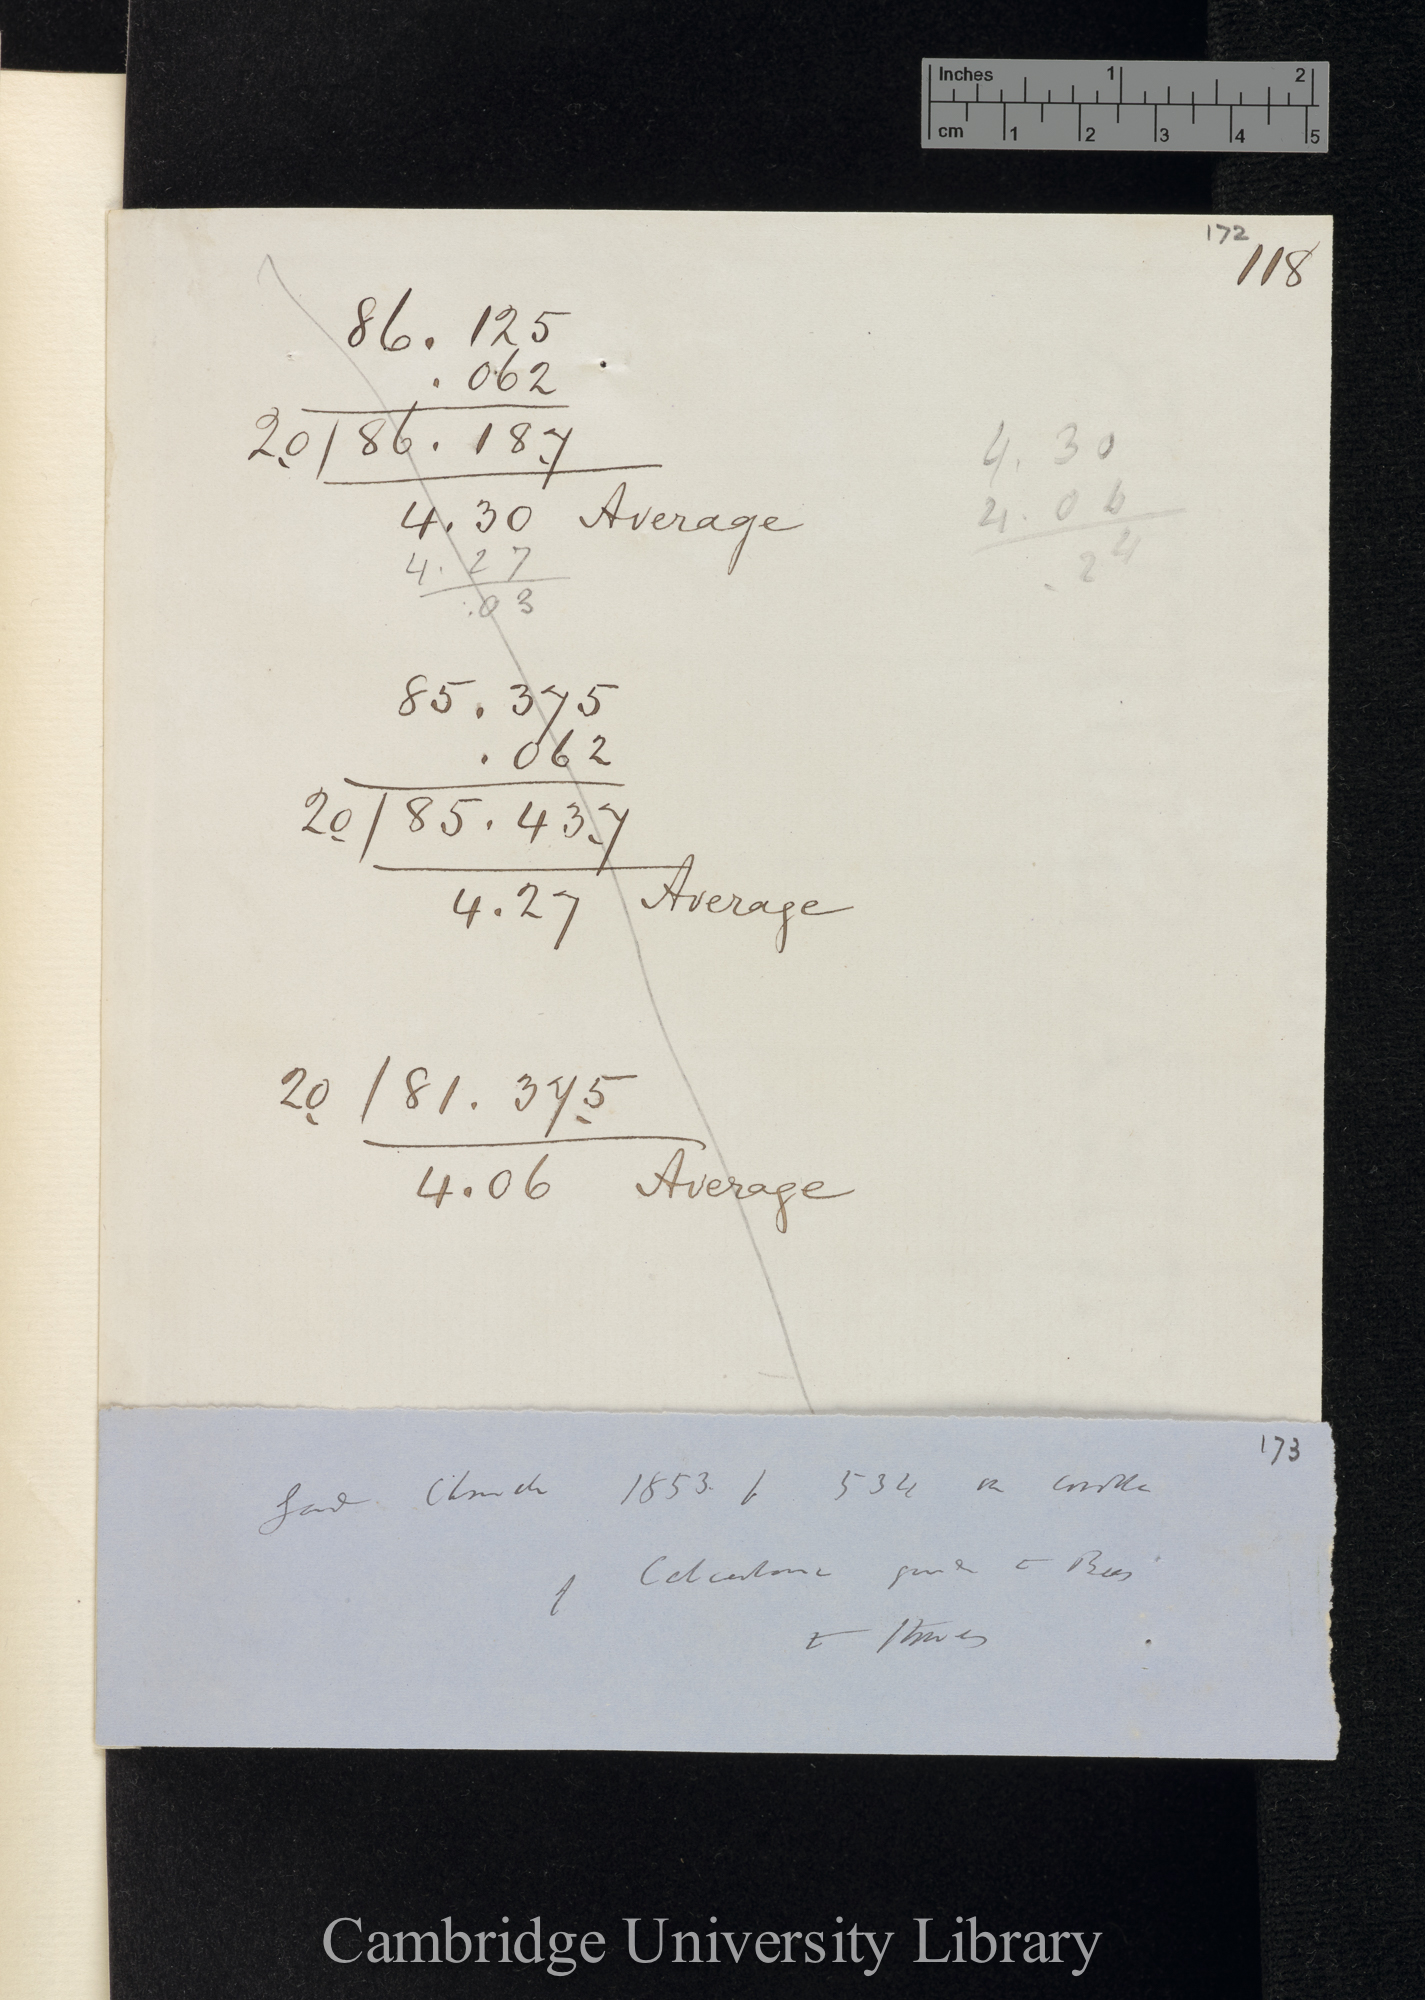 Inches 1 2
cm 1 2 3 4 5
172
118
86.125
.062
20/86.187
4.30 Average
4.27
.03
4.30
4.06
.24
85.375
.062
20/85.437
4.27 Average
20/81.375
4.06 Average
173
Gard Chronicle 1853. p 534 on
of Calceolaria Bees
Cambridge University Library